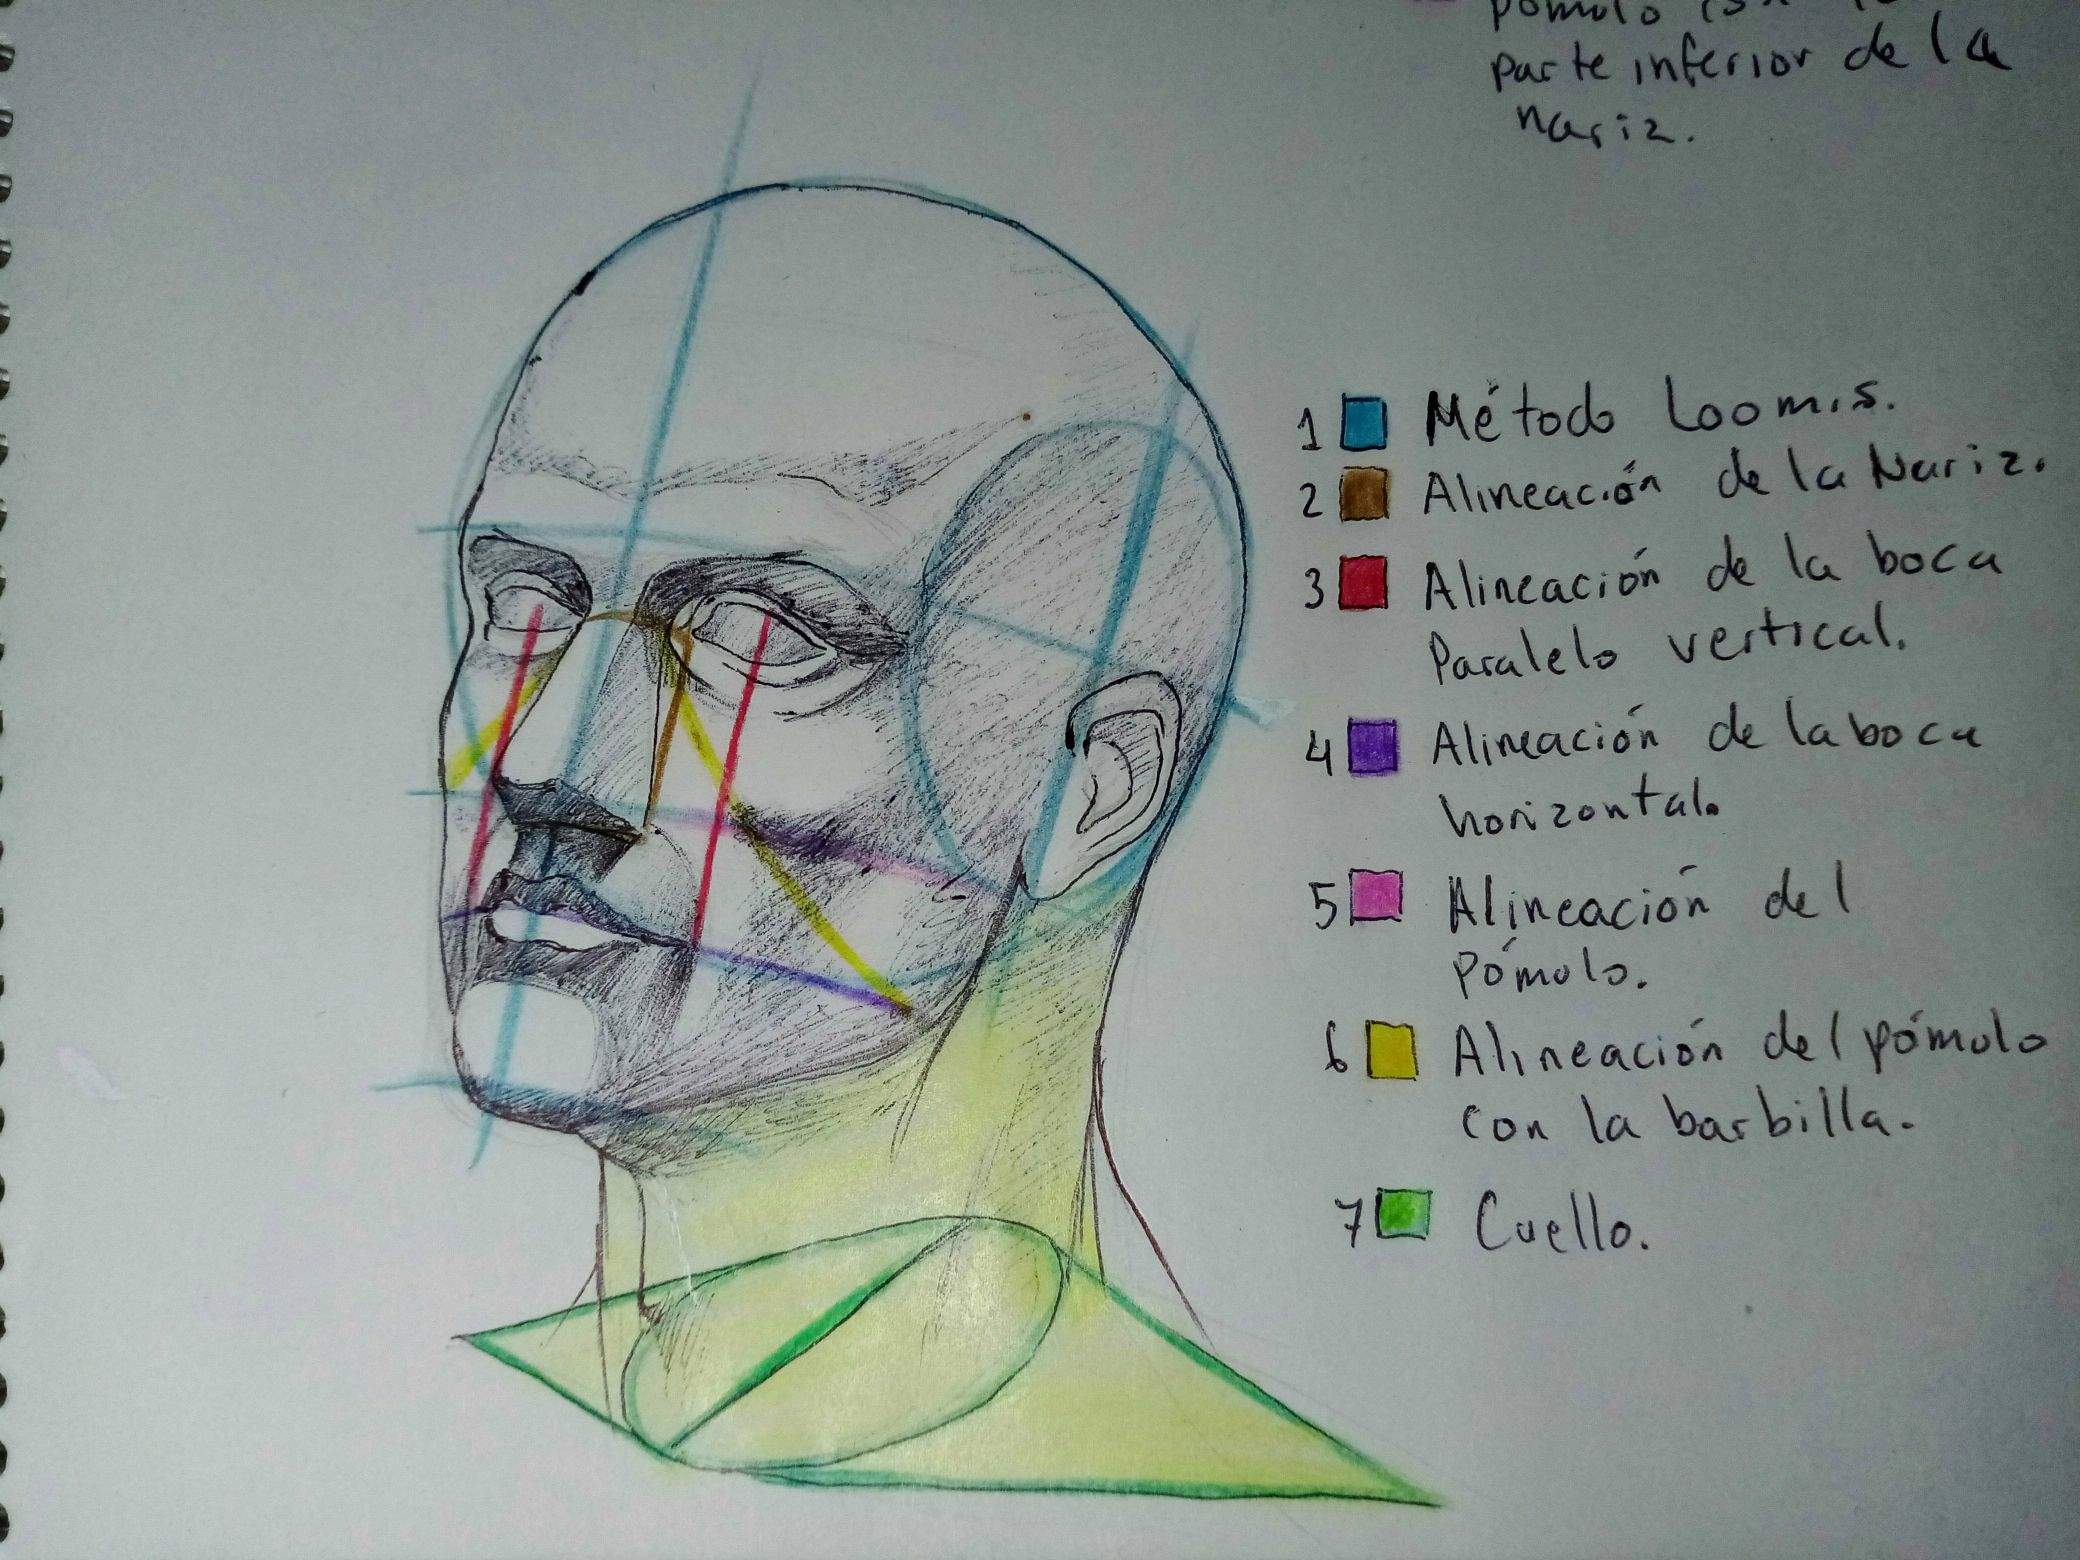 pómulo con
parte inferior de la
nariz.
1 Método Loomis.
2 Alineación de la Nariz.
3 Alineación de la boca
Paralelo vertical.
4 Alineación de la boca
horizontal.
5 Alineación del
pómulo.
6 Alineación del pómulo
con la barbilla.
7 Cuello.